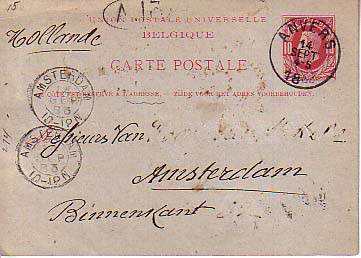 15
UNION POSTALE UNIVERSELLE
BELGIQUE
Hollande
CARTE POSTALE
ANVERS
14
SEPT
18
10
CÔTÉ RÉSERVÉ A L'ADRESSE. ZIJDE VOOR HET ADRES VOORBEHOUDEN.
AMSTERDAM
83
10-12N
AMSTERDAM
83
10-12N
Messieurs Van
Amsterdam
Binnenkant